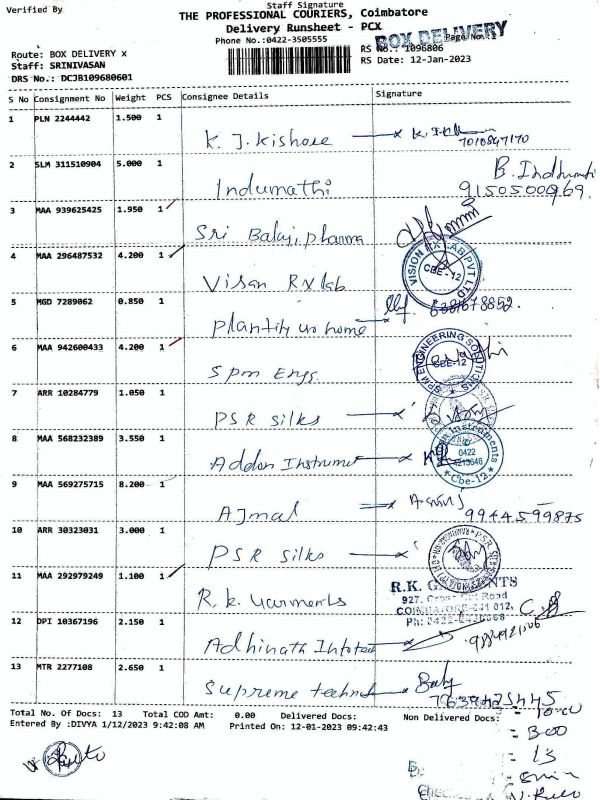 Verified By
Staff Signature
THE PROFESSIONAL COURIERS, Coimbatore
Delivery Runsheet - PCX
Phone No.:0422-3505555
BOX DELIVERY
Page No.:
Route: BOX DELIVERY x
Staff: SRINIVASAN
DRS No.: DCJB109680601
RS No.: 1096806
RS Date: 12-Jan-2023
S No Consignment No Weight PCS Consignee Details Signature
1 PLN 2244442 1.500 1 K. J. Kishore
7010847170
2 SLM 311510904 5.000 1 Indumathi B. Indhumathi
9150500969.
3 MAA 939625425 1.950 1 Sri Balaji pharma
4 MAA 296487532 4.200 1 Visan RX lab VISION RX LAB PVT LTD CBE-12
5 MGD 7289062 0.850 1 plantify ur home
6 MAA 942600433 4.200 1 Spm Engs SPM ENGINEERING SOLUTIONS CBE-12
7 ARR 10284779 1.050 1 PSR silks
8 MAA 568232389 3.550 1 Addon Instrument 0422 Cbe-12
9 MAA 569275715 8.200 1 Ajmal
9944599875
10 ARR 30323031 3.000 1 PSR silks
11 MAA 292979249 1.100 1 R. K. Garments R.K. GARMENTS
927, Road
COIMBATORE-641 012.
12 DPI 10367196 2.150 1 Adhinath Infotech
13 MTR 2277108 2.650 1 Supreme technd Baby
Total No. Of Docs: 13 Total COD Amt: 0.00 Delivered Docs: Non Delivered Docs:
Entered By :DIVYA 1/12/2023 9:42:08 AM Printed On: 12-01-2023 09:42:43
= 300
= 13